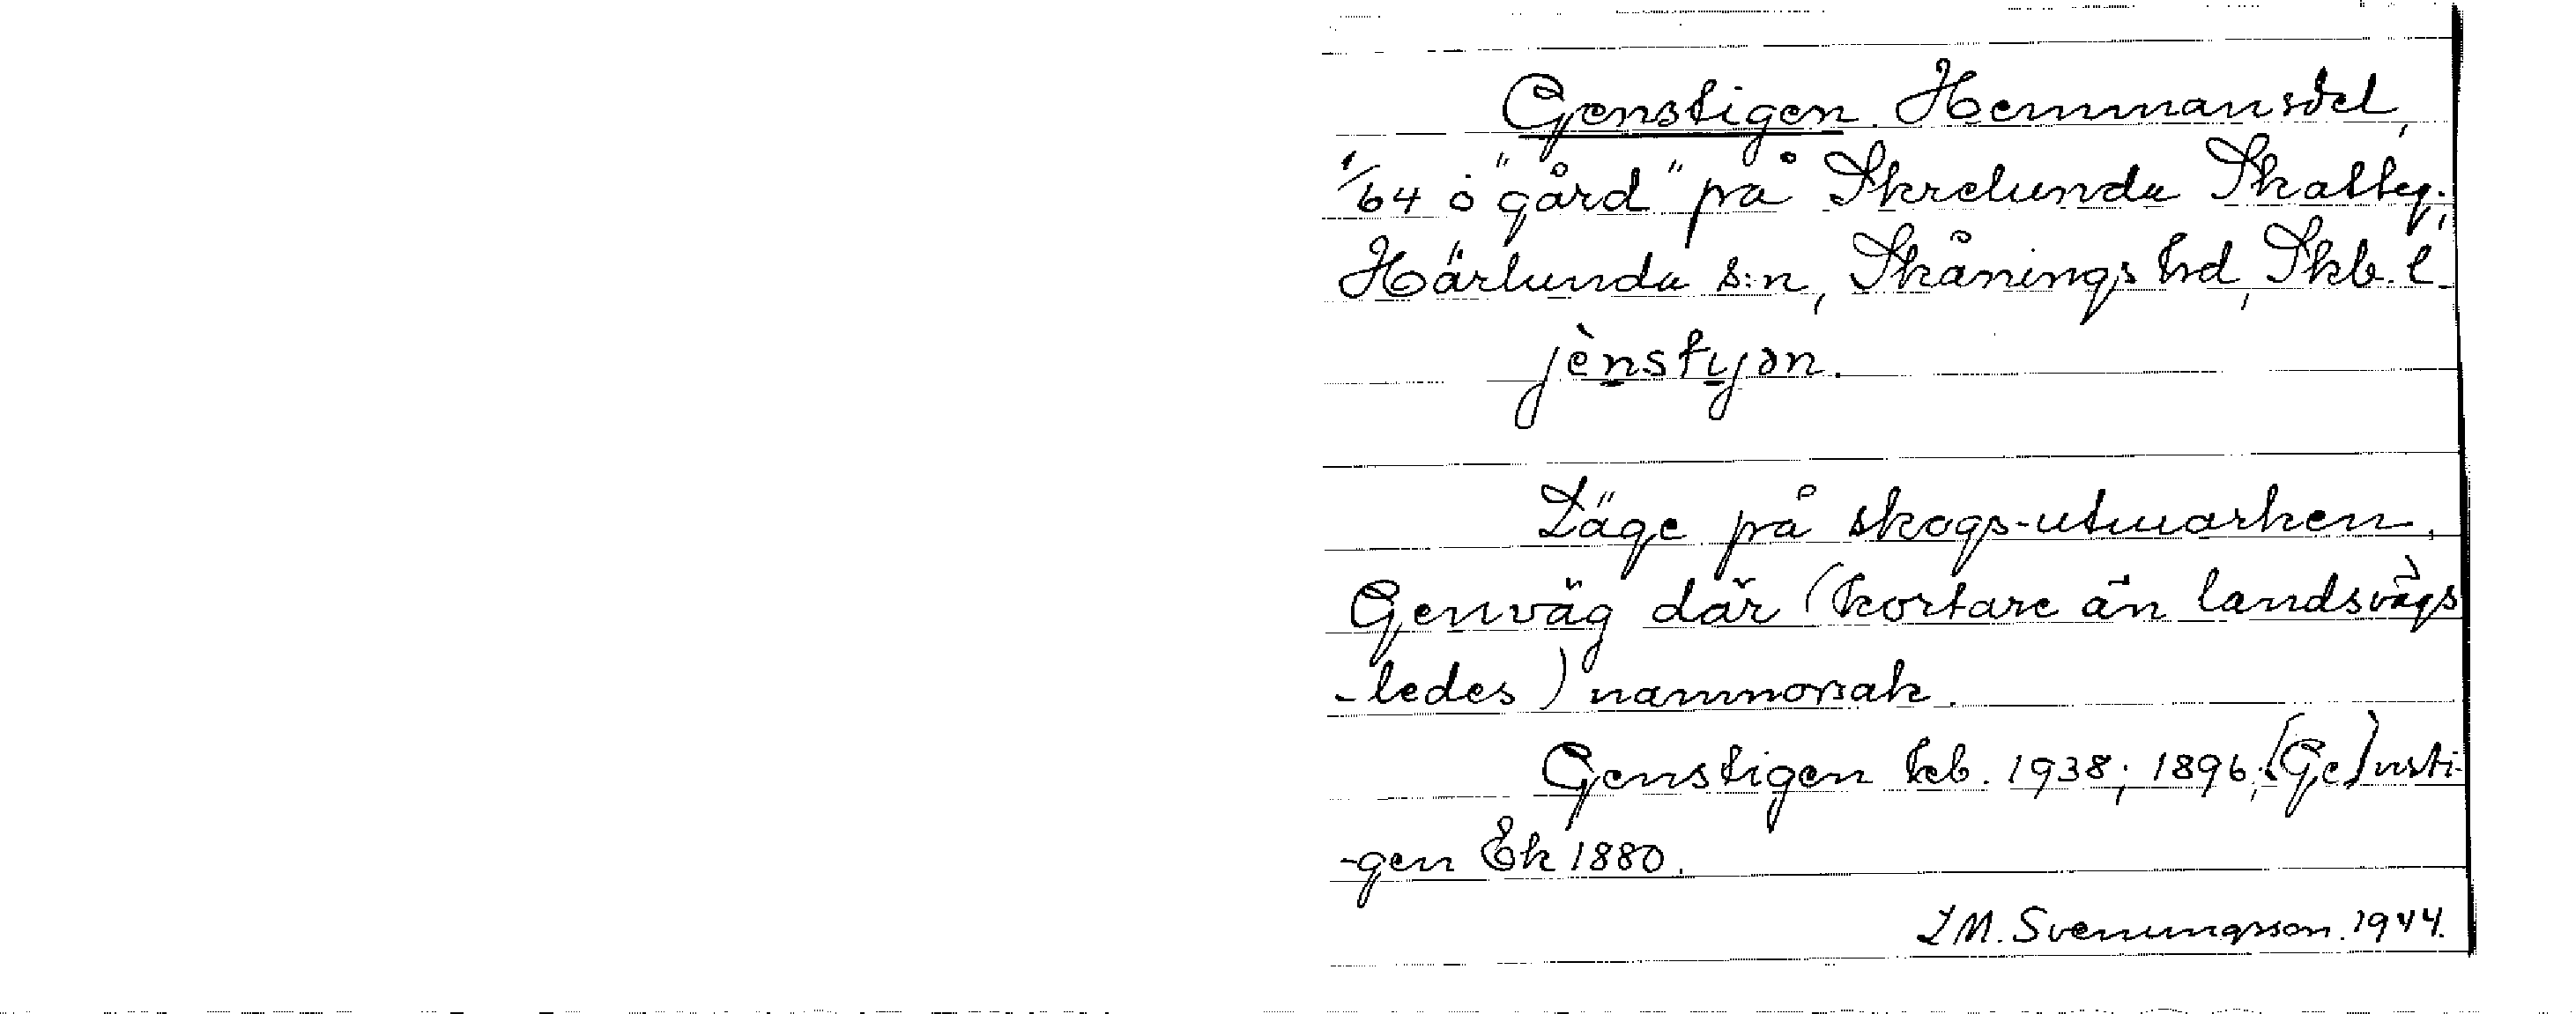 Genstigen. Hemmansdel,
1/64 o "gård" på Skrelunda Skatteg.,
Härlunda s:n, Skånings hd, Skb. l.
jènstyən.
Läge på skogs-utmarken.
Genväg där (kortare än landsvägs
-ledes) namnorsak.
Genstigen kb. 1938; 1896; (Ge)nsti-
-gen Ek 1880.
L M. Svenungsson. 1944.